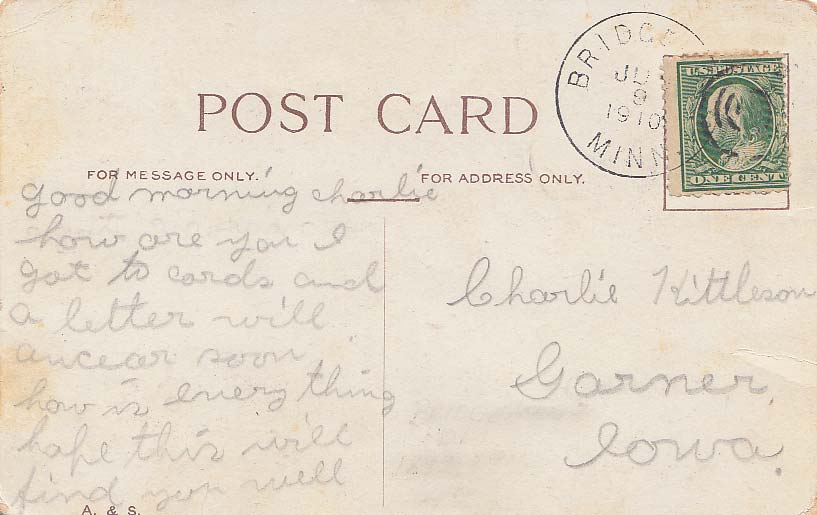 BRIDGE
JU
9
1910
MINN
U.S. POSTAGE
ONE CENT
POST CARD
FOR MESSAGE ONLY.
FOR ADDRESS ONLY.
good morning charlie
how are you I
got to cards and
a letter will
ancear soon
how is every thing
hope this will
find you well
Charlie Kittleson
Garner,
Iowa.
A. & S.